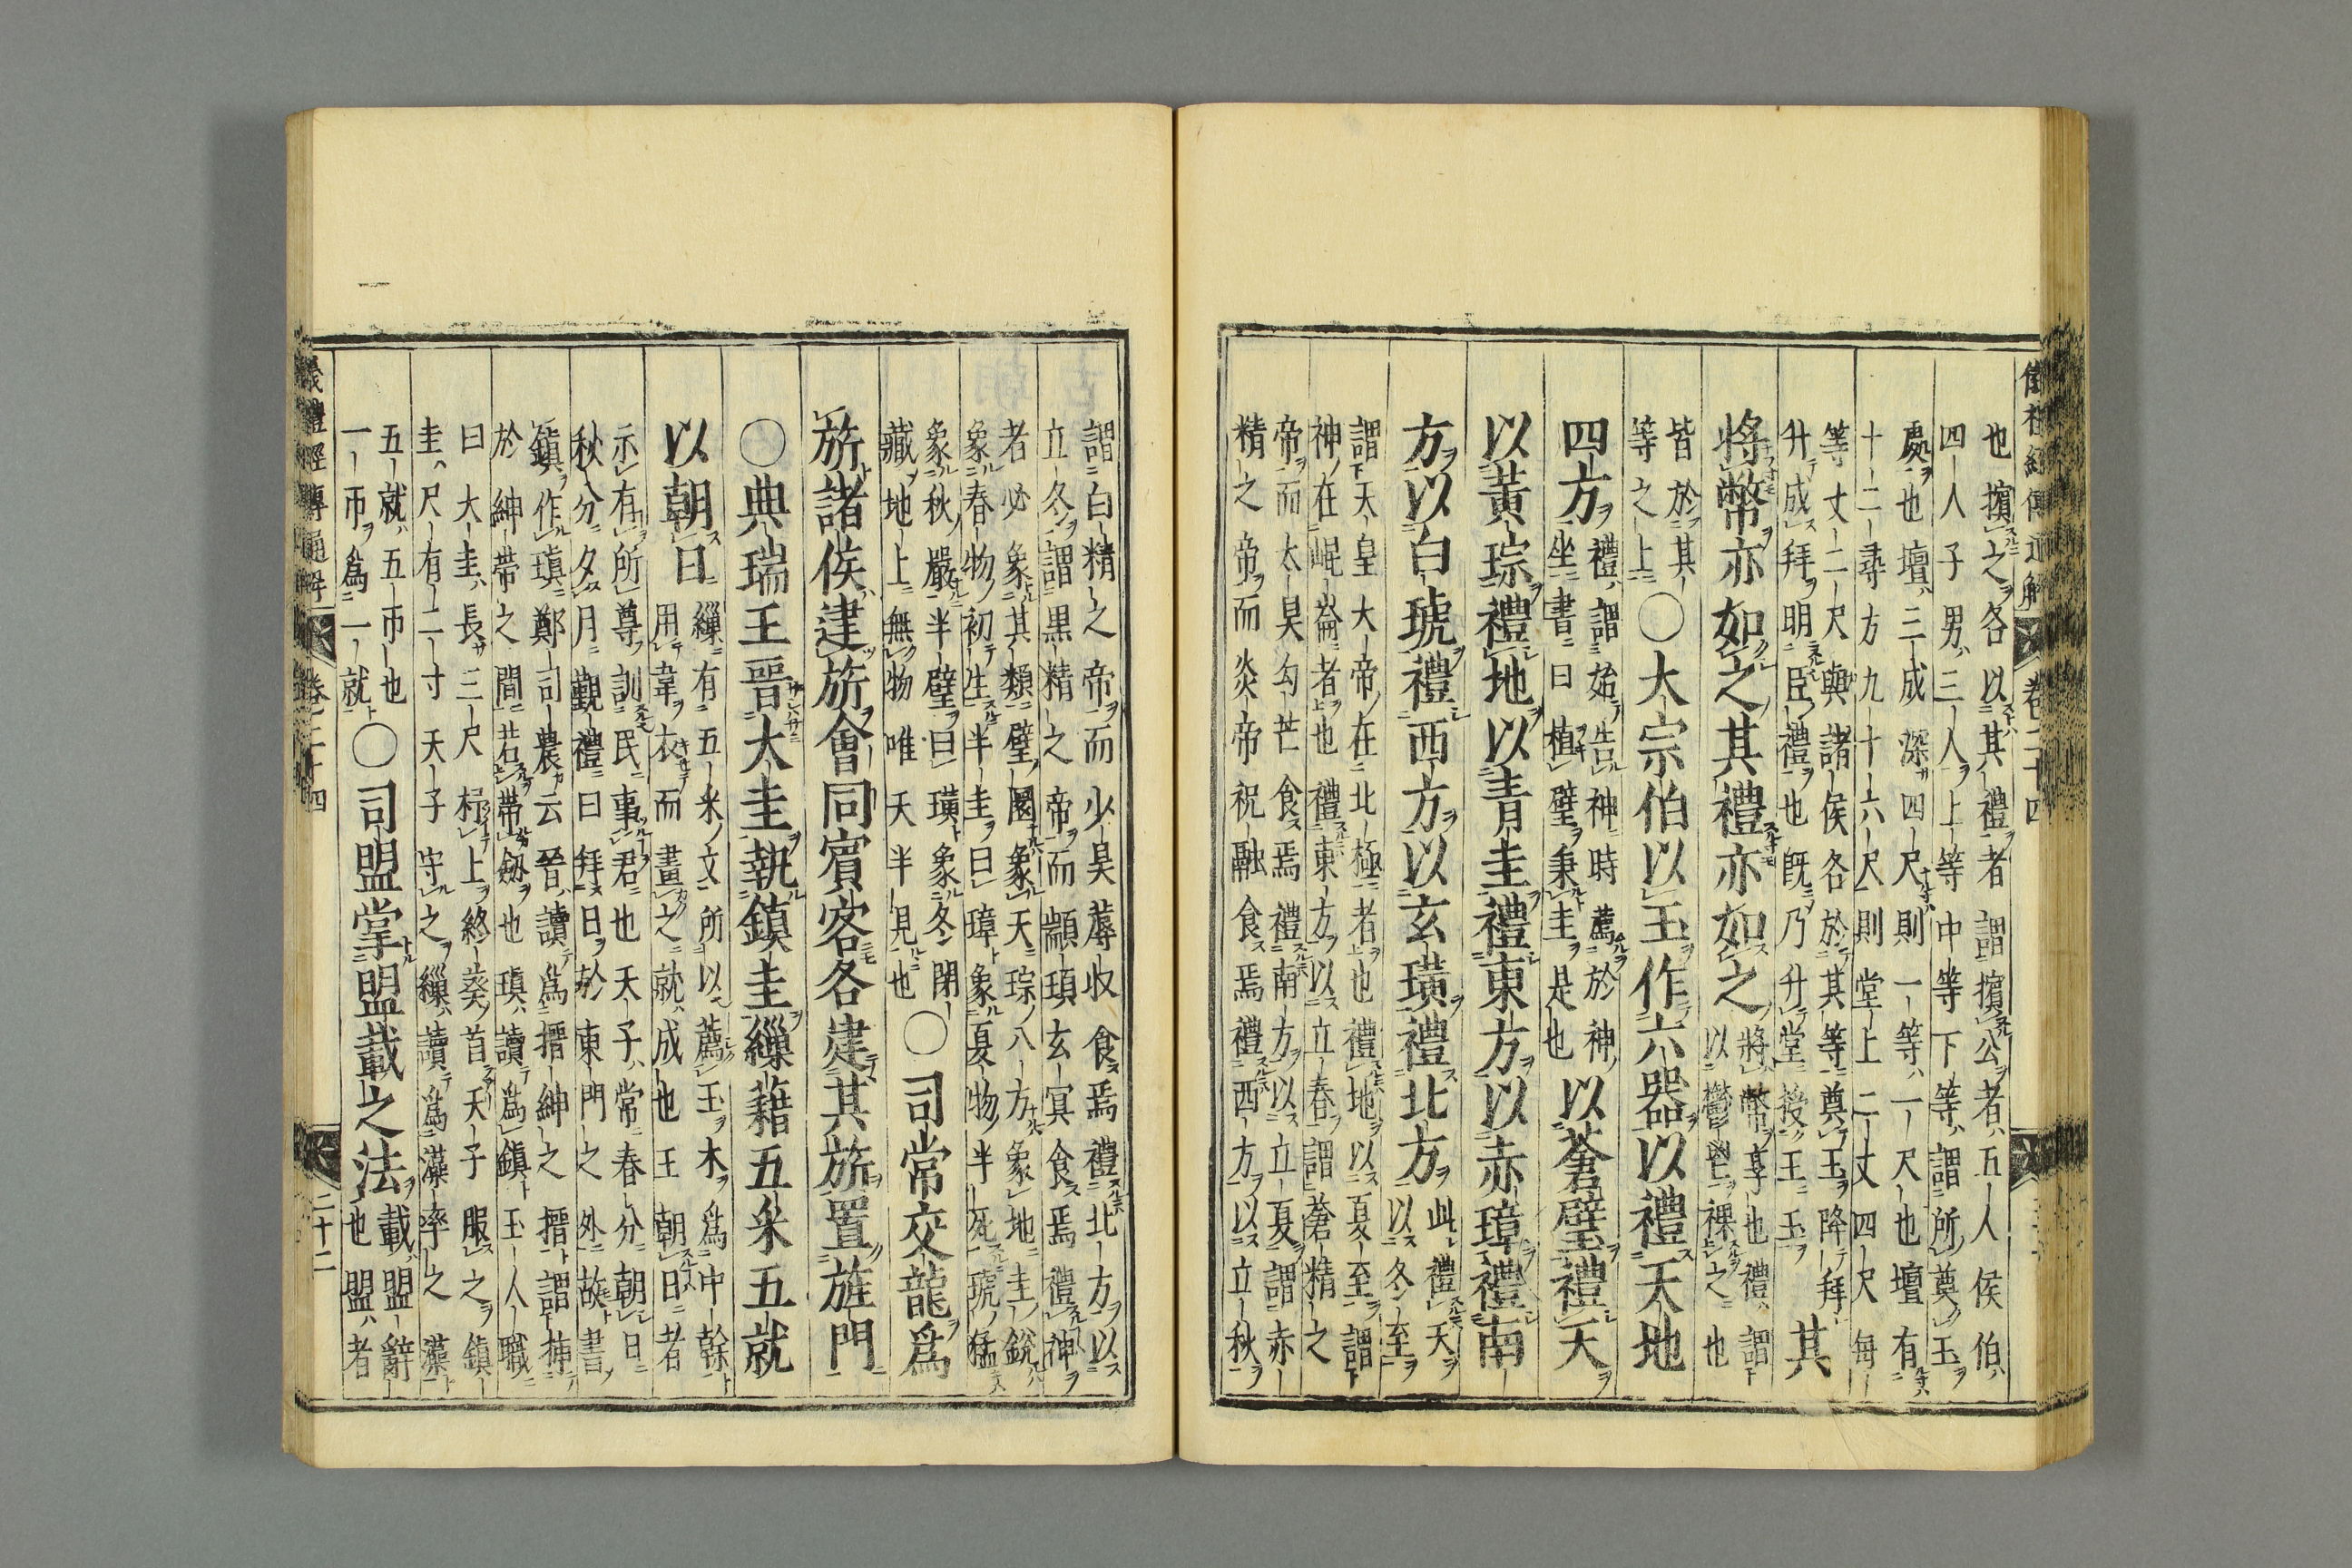 儀禮經傳通解 卷二十四
也擯之各以其禮者謂擯公者五人侯伯
四人子男三人上等中等下等謂所奠玉
處也壇三成深四尺則一等一尺也壇有
十二尋方九十六尺則堂上二丈四尺每
等丈二尺與諸侯各於其等奠玉降拜
升成拜明臣禮也既乃升堂授王玉
其
將幣亦如之其禮亦如之
將幣享也禮謂
以鬱鬯祼之也
皆於其
等之上
〇大宗伯以玉作六器以禮天地
四方
禮謂始告神時薦於神
坐書曰植璧秉圭是也
以蒼璧禮天
以黃琮禮地以青圭禮東方以赤璋禮南
方以白琥禮西方以玄璜禮北方
此禮天
以冬至
謂天皇大帝在北極者也禮地以夏至謂
神在崐崙者也禮東方以立春謂蒼精之
帝而太昊勾芒食焉禮南方以立夏謂赤
精之帝而炎帝祝融食焉禮西方以立秋
謂白精之帝而少昊蓐收食焉禮北方以
立冬謂黑精之帝而顓頊玄冥食焉禮神
者必象其類璧圜象天琮八方象地圭銳
象春物初生半圭曰璋象夏物半死琥猛
象秋嚴半璧曰璜象冬閉
藏地上無物唯天半見也
〇司常交龍為
旂諸侯建旂會同賓客各建其旂置旌門
〇典瑞王晉大圭執鎮圭繅藉五采五就
以朝日
繅有五采文所以薦玉木為中榦
用韋衣而畫之就成也王朝日者
示有所尊訓民事君也天子常春分朝日
秋分夕月觀禮曰拜日於東門之外故書
鎮作瑱鄭司農云晉讀為搢紳之搢謂揷
於紳帶之間若帶劔也瑱讀為鎮玉人職
曰大圭長三尺杼上終葵首天子服之鎮
圭尺有二寸天子守之繅讀為藻率之藻
五就五帀也
一帀為一就
〇司盟掌盟載之法
載盟辭
也盟者
儀禮經傳通解 卷二十四 二十二